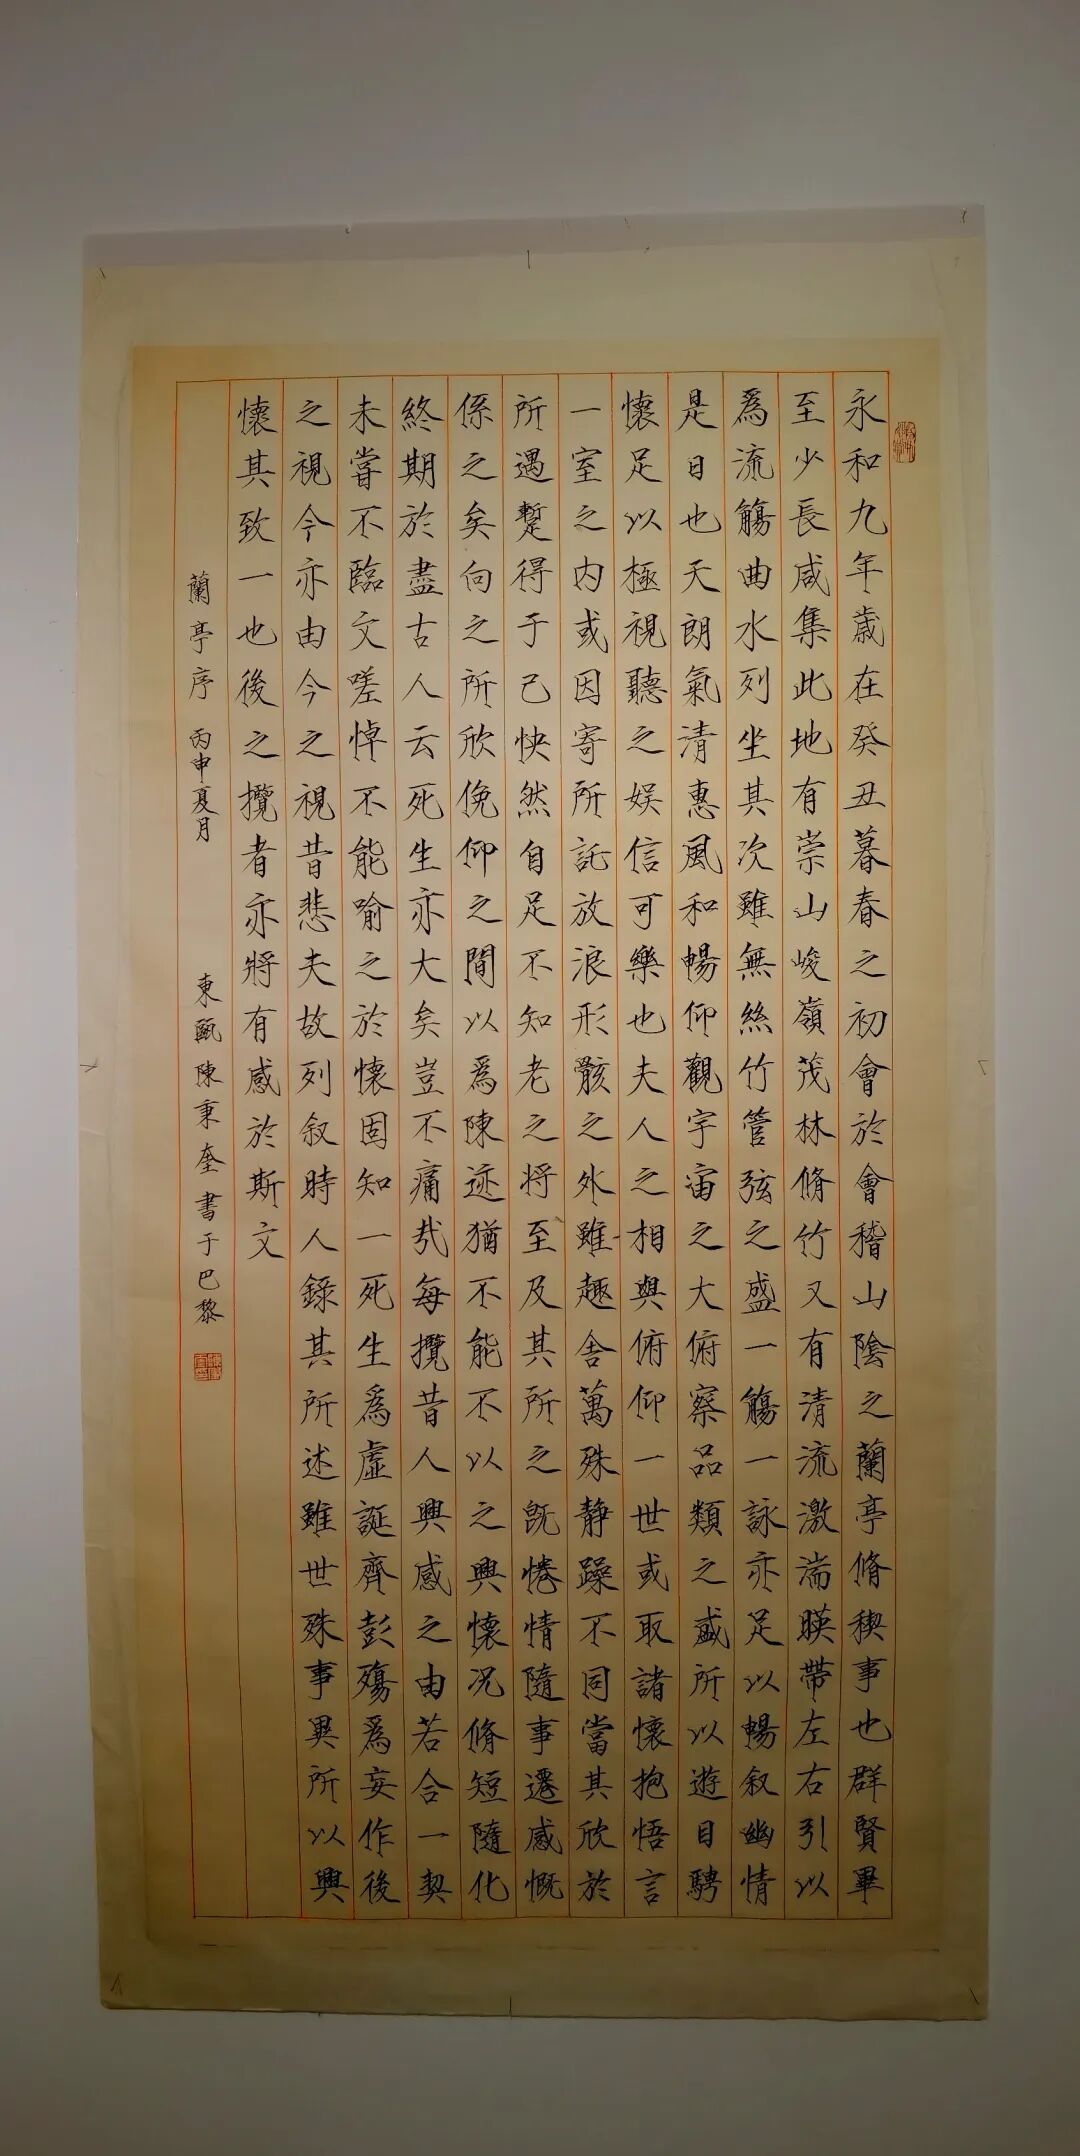 永和九年歲在癸丑暮春之初會於會稽山陰之蘭亭脩稧事也群賢畢
至少長咸集此地有崇山峻嶺茂林脩竹又有清流激湍暎帶左右引以
為流觴曲水列坐其次雖無絲竹管弦之盛一觴一詠亦足以暢叙幽情
是日也天朗氣清惠風和暢仰觀宇宙之大俯察品類之盛所以遊目騁
懷足以極視聽之娱信可樂也夫人之相與俯仰一世或取諸懷抱悟言
一室之内或因寄所託放浪形骸之外雖趣舍萬殊静躁不同當其欣於
所遇蹔得于己快然自足不知老之将至及其所之既惓情隨事遷感慨
係之矣向之所欣俛仰之間以為陳迹猶不能不以之興懷况脩短隨化
終期於盡古人云死生亦大矣豈不痛哉每攬昔人興感之由若合一契
未嘗不臨文嗟悼不能喻之於懷固知一死生為虛誕齊彭殤為妄作後
之視今亦由今之視昔悲夫故列叙時人錄其所述雖世殊事異所以興
懷其致一也後之攬者亦將有感於斯文
蘭亭序 丙申夏月 東甌陳秉奎書于巴黎